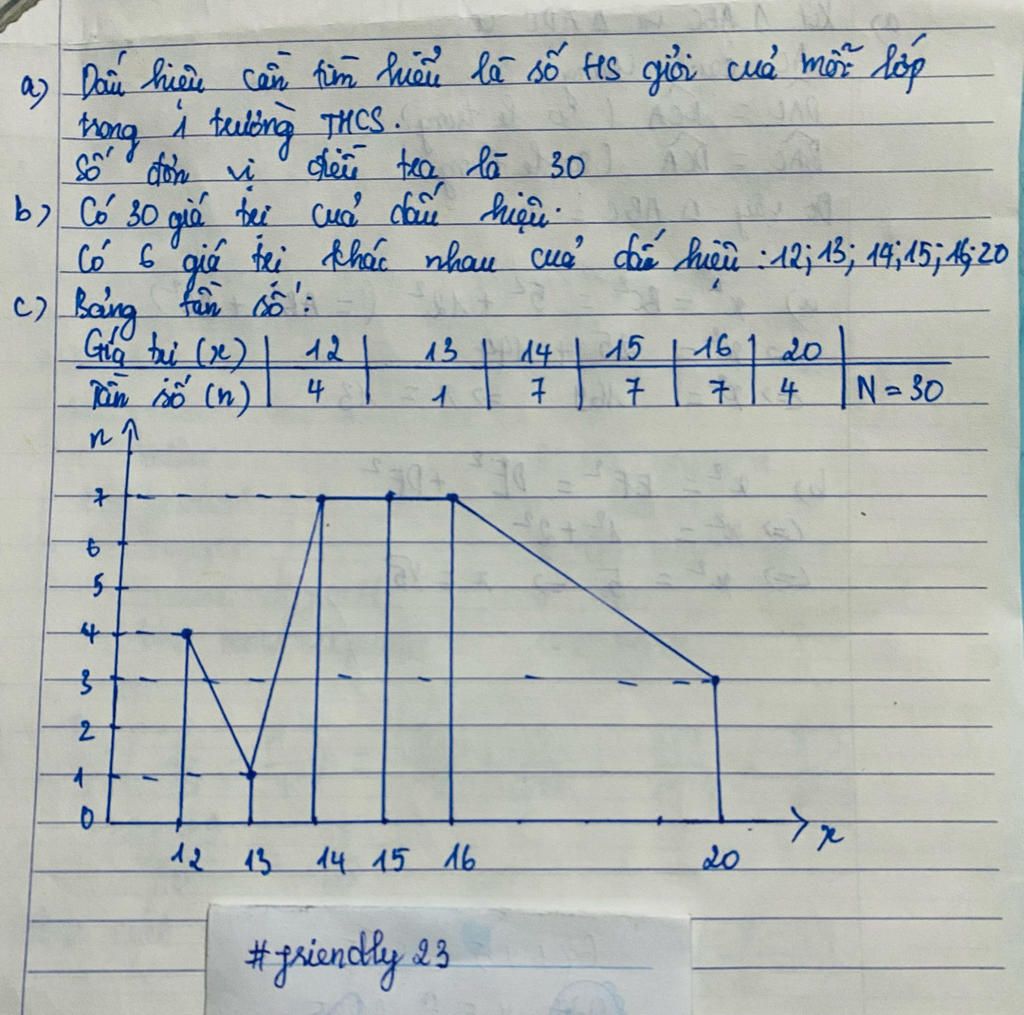 a) Dấu hiệu cần tìm hiểu là số HS giỏi cuả mỗi lớp
trong 1 trường THCS.
Số đơn vị điều tra là 30
b) Có 30 giá trị cuả dấu hiệu.
Có 6 giá trị khác nhau cuả dấu hiệu : 12; 13; 14; 15; 16; 20
c) Bảng tần số :
Giá trị (x) | 12 | 13 | 14 | 15 | 16 | 20 |
Tần số (n) | 4 | 1 | 7 | 7 | 7 | 4 | N = 30
n
7
6
5
4
3
2
1
0
12 13 14 15 16 20 x
#friendly 23